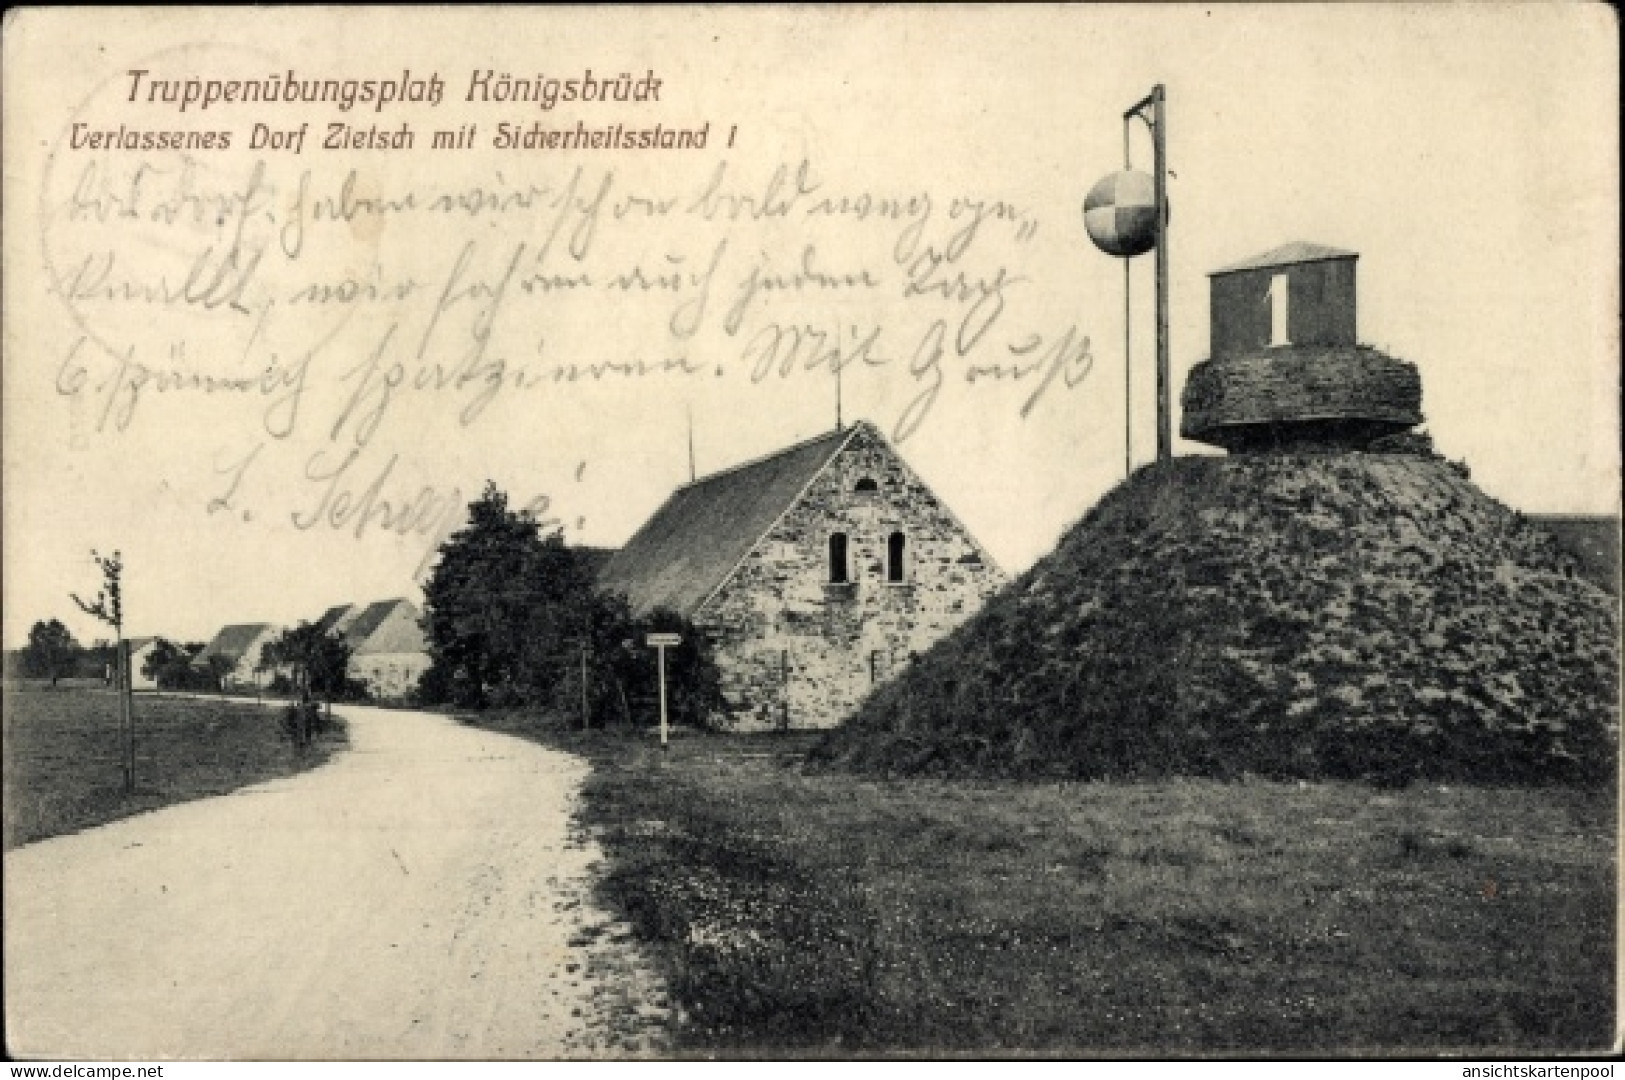 Truppenübungsplatz Königsbrück
Verlassenes Dorf Zietsch mit Sicherheitsstand 1
das Dorf haben wir schon bald weg ge„
knallt, wir fahren auch jeden Tag
6.spännig spatzieren. Mit Gruß
L. !
1
www.delcampe.net
ansichtskartenpool